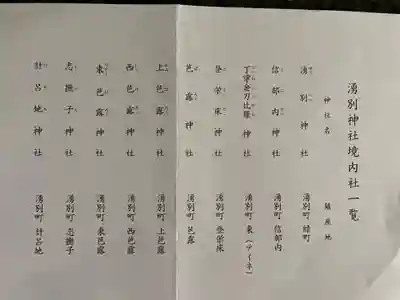 湧別神社境内社一覧
神社名 鎮座地
湧別神社 湧別町 緑町
信部内神社 湧別町 信部内
丁寧金刀比羅神社 湧別町 東(テイネ)
登栄床神社 湧別町 登栄床
芭露神社 湧別町 芭露
上芭露神社 湧別町 上芭露
西芭露神社 湧別町 西芭露
東芭露神社 湧別町 東芭露
志撫子神社 湧別町 志撫子
計呂地神社 湧別町 計呂地